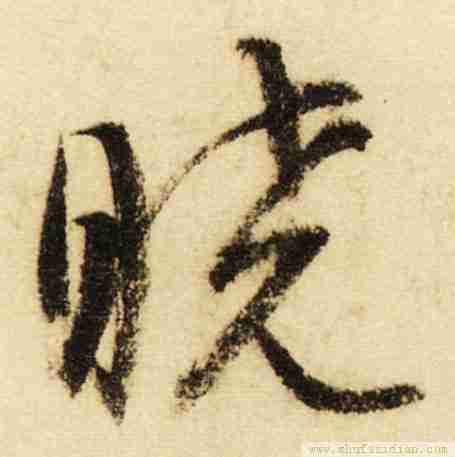 晓
www.shufazidian.com